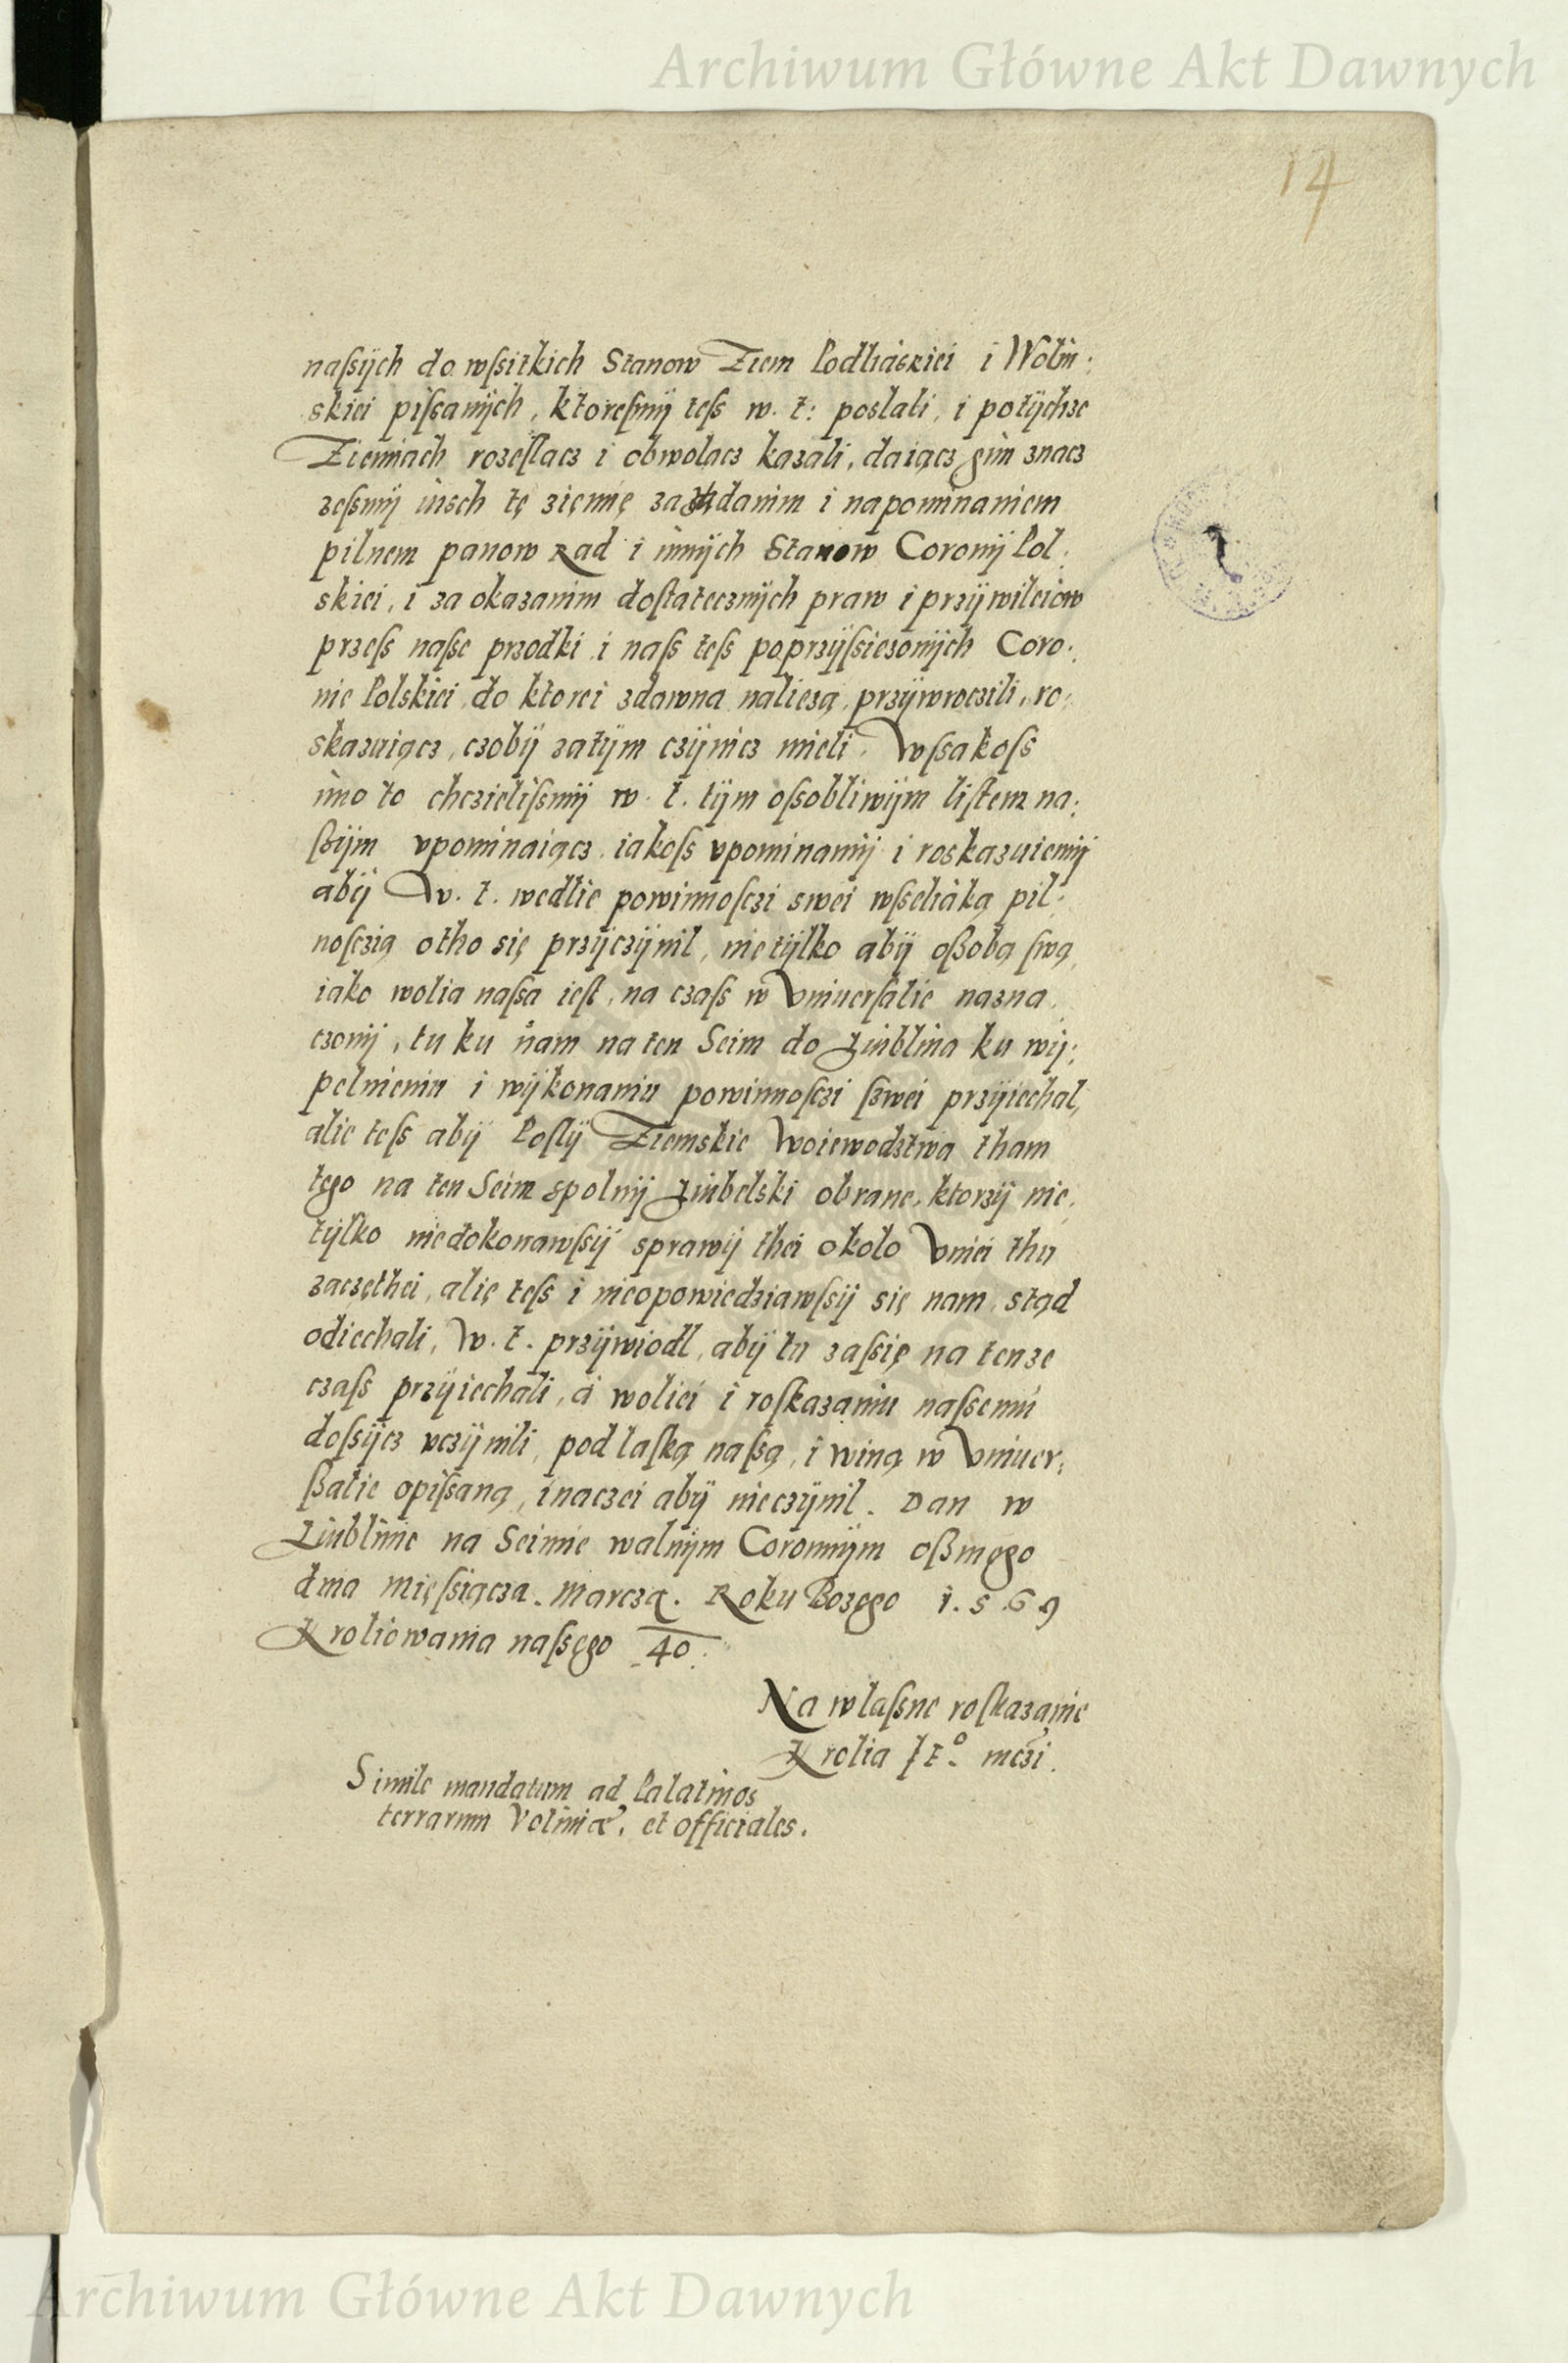 Archiwum Główne Akt Dawnych
14
naſsÿch do wſsitkich Stanow Ziem Podliaskiei i Wolin:
skiei piſsanÿch, ktoreſmÿ teſs w. t: poslali, i potÿchze
Ziemiach rozeſlacz i obwolacz kazali, daiącz gim znacz
zeſsmÿ iusch tę zięmię za ządanim i napominaniem
pilnem panow Rad i innÿch Stanow Coronÿ Pol:
skiei, i za okazanim doſtatecznÿch praw i przÿwileiow
przeſs naſse przodki i naſs teſs poprzÿſsiezonÿch Coro:
nie Polskiei do ktorei zdawna nalieżą, przÿwroczili, ro:
skazuiącz, czobÿ zatÿm czÿnicz mieli. Wſsakoſs
imo to chczieliſsmÿ w. t. tÿm oſsobliwÿm liſtem na:
ſzÿm vpominaiącz, iakoſs vpominamÿ i roskazuiemÿ
abÿ W. t. wedlie powinnoſczi swei wſseliaką pil:
noſczią otho się przÿczÿnil, nietÿlko abÿ oßobą ſwą,
iako wolia naſsa ieſt, na czaſs w Vniuerſalie nazna:
czonÿ, tu ku nam na ten Seim do Liublina ku wÿ:
pelnieniu i wÿkonaniu powinnoſczi ſzwei przÿiechal,
alie teſs abÿ Poſlÿ Ziemskie Woiewodztwa tham
tego na ten Seim spolnÿ Liubelski obrane, ktorzÿ nie:
tÿlko niedokonawſsÿ sprawÿ thei okolo Vniei thu
zaczęthei, alię teſs i nieopowiedziawſsÿ się nam, stąd
odiechali, W. t. przÿwiodl, abÿ tu zaſsię na tenze
czaſs przÿiechali, a woliei i roſkazaniu naſsemu
doſsÿcz vczÿnili, pod laſką naſsą, i winą w Vniuer:
ßalie opiſsaną, inaczei abÿ nieczÿnil. Dan w
Liublinie na Seimie walnÿm Coronnÿm oßmego
dnia Mięſsiącza Marcza. Roku Bozego 1.5.69
Kroliowania naſsęgo 40.
Na wlaſsne roſkazanie
Krolia J t°. mczi.
Simile mandatum ad Palatinos
terrarum Voliniæ, et officiales.
Archiwum Główne Akt Dawnych